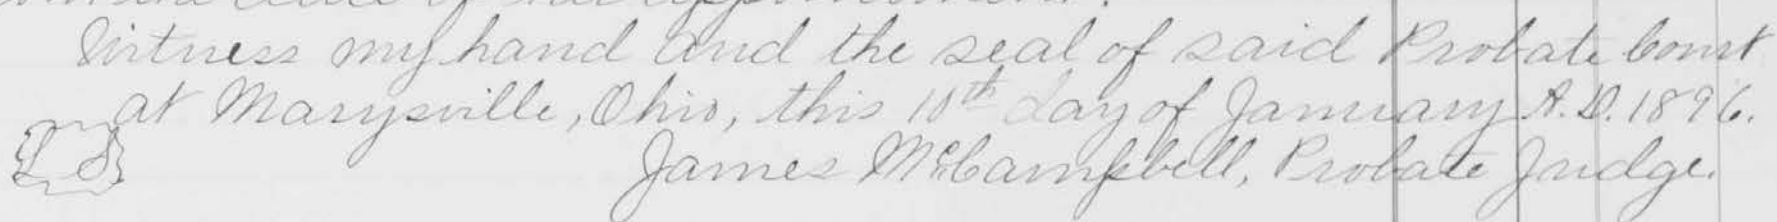 of her appointment.
Witness my hand and the seal of said Probate Court
at Marysville, Ohio, this 10th day of January A.D. 1896.
L S
James McCampbell, Probate Judge.